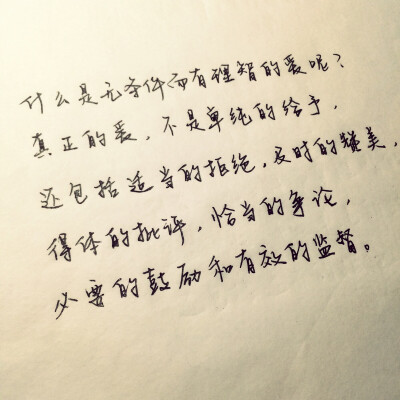 什么是无条件而有理智的爱呢？
真正的爱，不是单纯的给予，
还包括适当的拒绝，及时的赞美，
得体的批评，恰当的争论，
必要的鼓励和有效的监督。